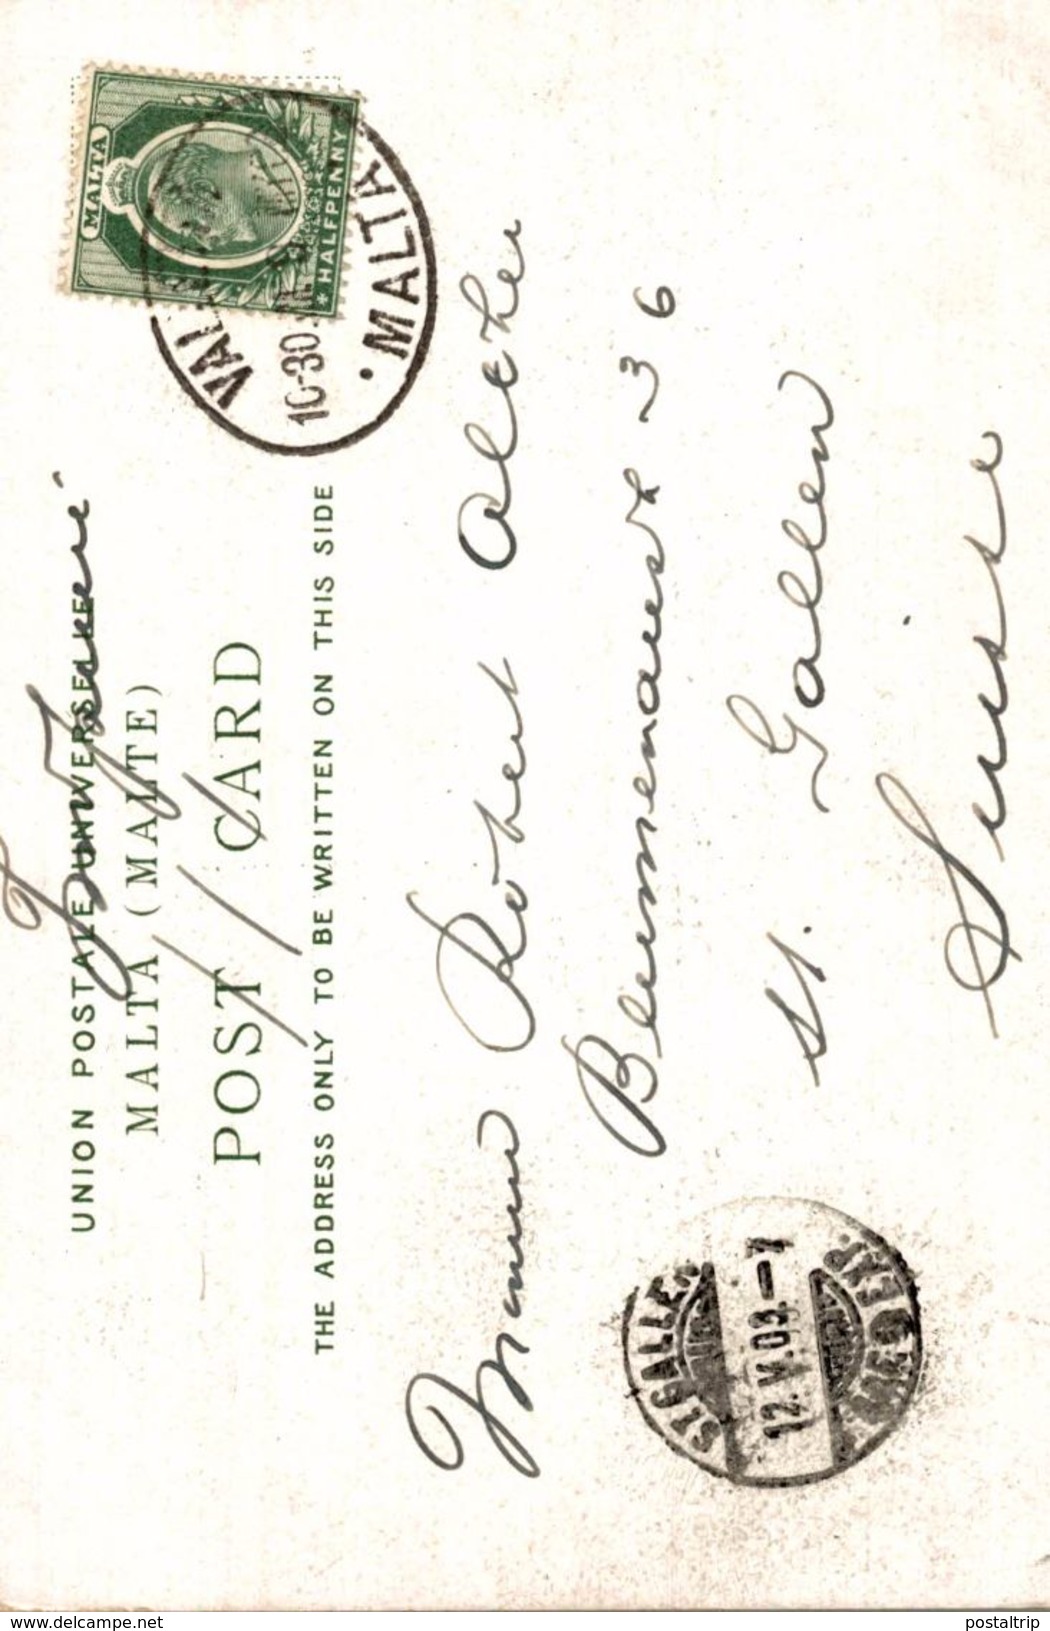 UNION POSTALE UNIVERSELLE
MALTA (MALTE)
POST CARD
THE ADDRESS ONLY TO BE WRITTEN ON THIS SIDE
MALTA
HALFPENNY
10-30
MALTA
Robert
36
St. Gallen
Suisse
ST. GALLEN
12.V.03.-7
delcampe.net
postaltrip